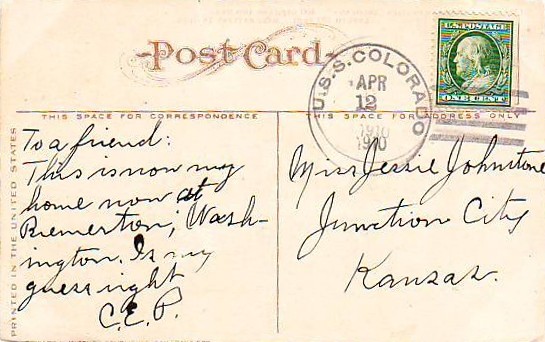 Post Card
U.S. POSTAGE
ONE CENT
U.S.S. COLORADO
APR
12
1910
1910
THIS SPACE FOR CORRESPONDENCE
THIS SPACE FOR ADDRESS ONLY
PRINTED IN THE UNITED STATES
To a friend:
This is now my
home now at
Bremerton, Wash-
ington. Is my
guess right
C.E.P.
Miss Jessie Johnstone
Junction City
Kansas.